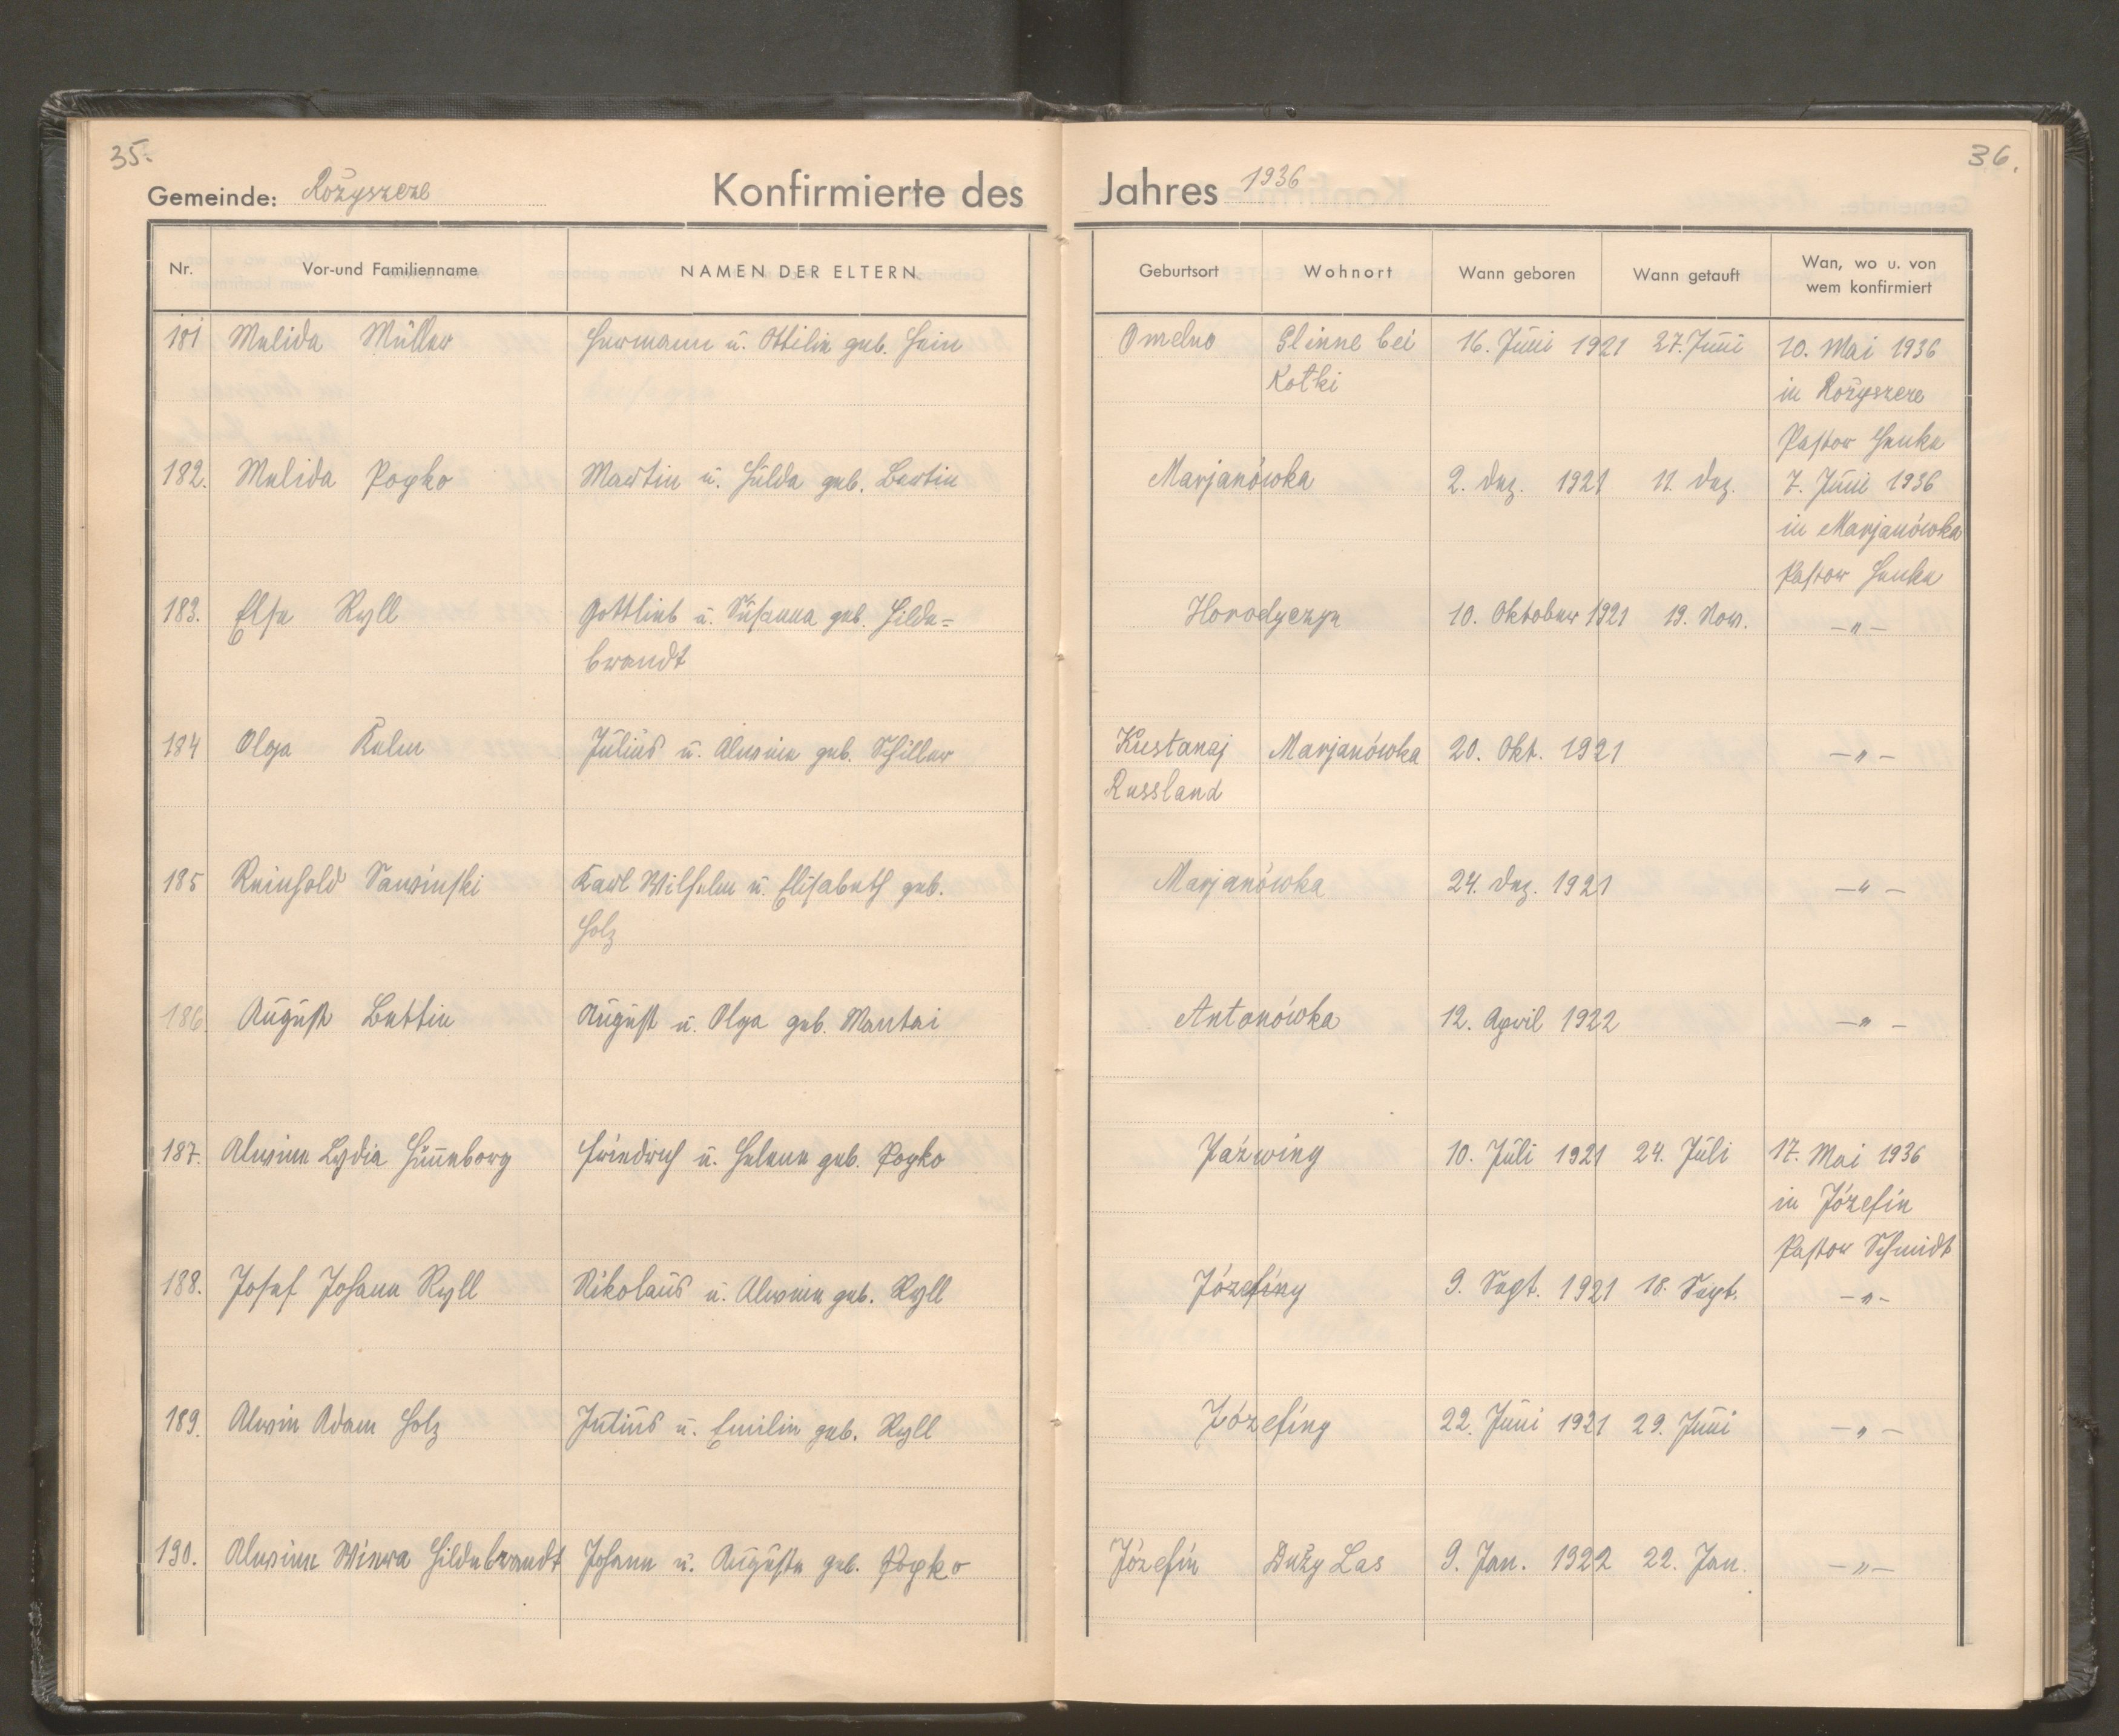 35.
36.
Gemeinde: Rożyszcze
Konfirmierte des Jahres 1936
Nr. Vor-und Familienname NAMEN DER ELTERN Geburtsort Wohnort Wann geboren Wann getauft Wan, wo u. von
wem konfirmiert
181 Melida Müller Hermann u. Ottilie geb. Hein Omelno Glinne bei 16. Juni 1921 27. Juni 10. Mai 1936
Kołki in Rożyszcze
Pastor Henke
182. Melida Poyko Martin u. Hulda geb. Bertin Marjanówka 2. Dez. 1921 11. Dez. 7. Juni 1936
in Marjanówka
Pastor Henke
183. Else Ryll Gottlieb u. Susanna geb. Hilde= Horodyczyn 10. Oktober 1921 19. Nov. -„-
brandt
184 Olga Kelm Julius u. Alwine geb. Schiller Kustanaj Marjanówka 20. Okt. 1921 -„-
Russland
185 Reinhold Sawinski Karl Wilhelm u. Elisabeth geb. Marjanówka 24. Dez. 1921 -„-
Holz
186 August Bettin August u. Olga geb. Mantai Antonówka 12. April 1922 -„-
187. Alwine Lydia Hünneborg Friedrich u. Helene geb. Poyko Jaźwiny 10. Juli 1921 24. Juli 17. Mai 1936
in Józefin
Pastor Schmidt
188. Josef Johann Ryll Nikolaus u. Alwine geb. Ryll Józefiny 9. Sept. 1921 18. Sept. -„-
189. Alwin Adam Holz Julius u. Emilie geb. Ryll Józefiny 22. Juni 1921 29. Juni -„-
190. Alwine Minna Hildebrandt Johann u. Auguste geb. Poyko Józefin Duży Las 9. Jan. 1922 22. Jan. -„-